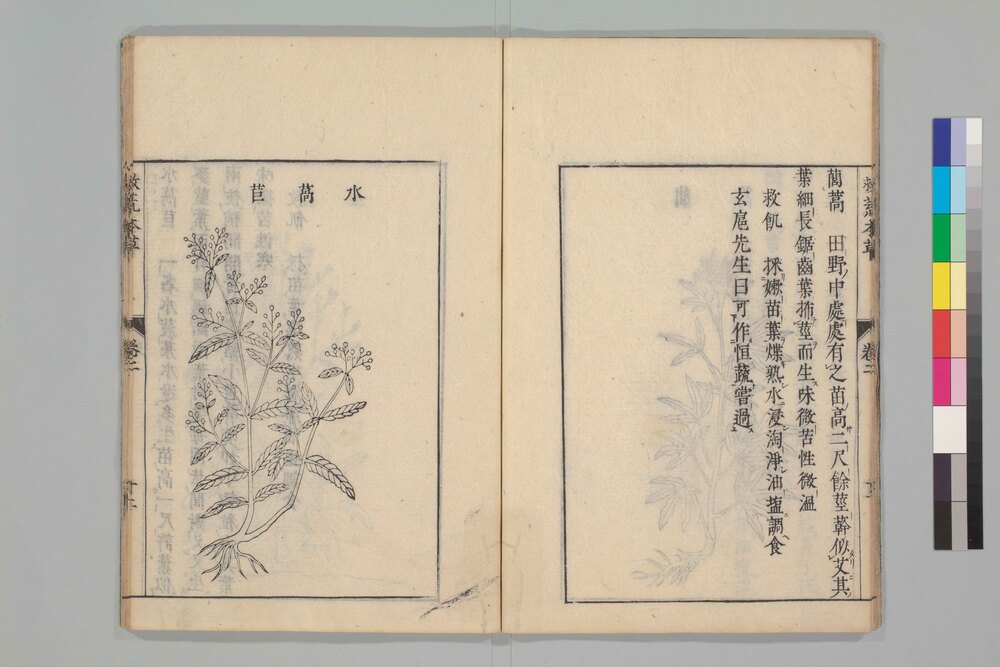 蕳蒿　田野中處處有之苗高二尺餘莖簳似艾其
葉細長鋸齒葉抪莖而生味微苦性微溫
救飢　採嫩苗葉煠熟水浸淘淨油塩調食
玄扈先生曰可作恒蔬嘗過
水萵苣
救荒本草
卷二